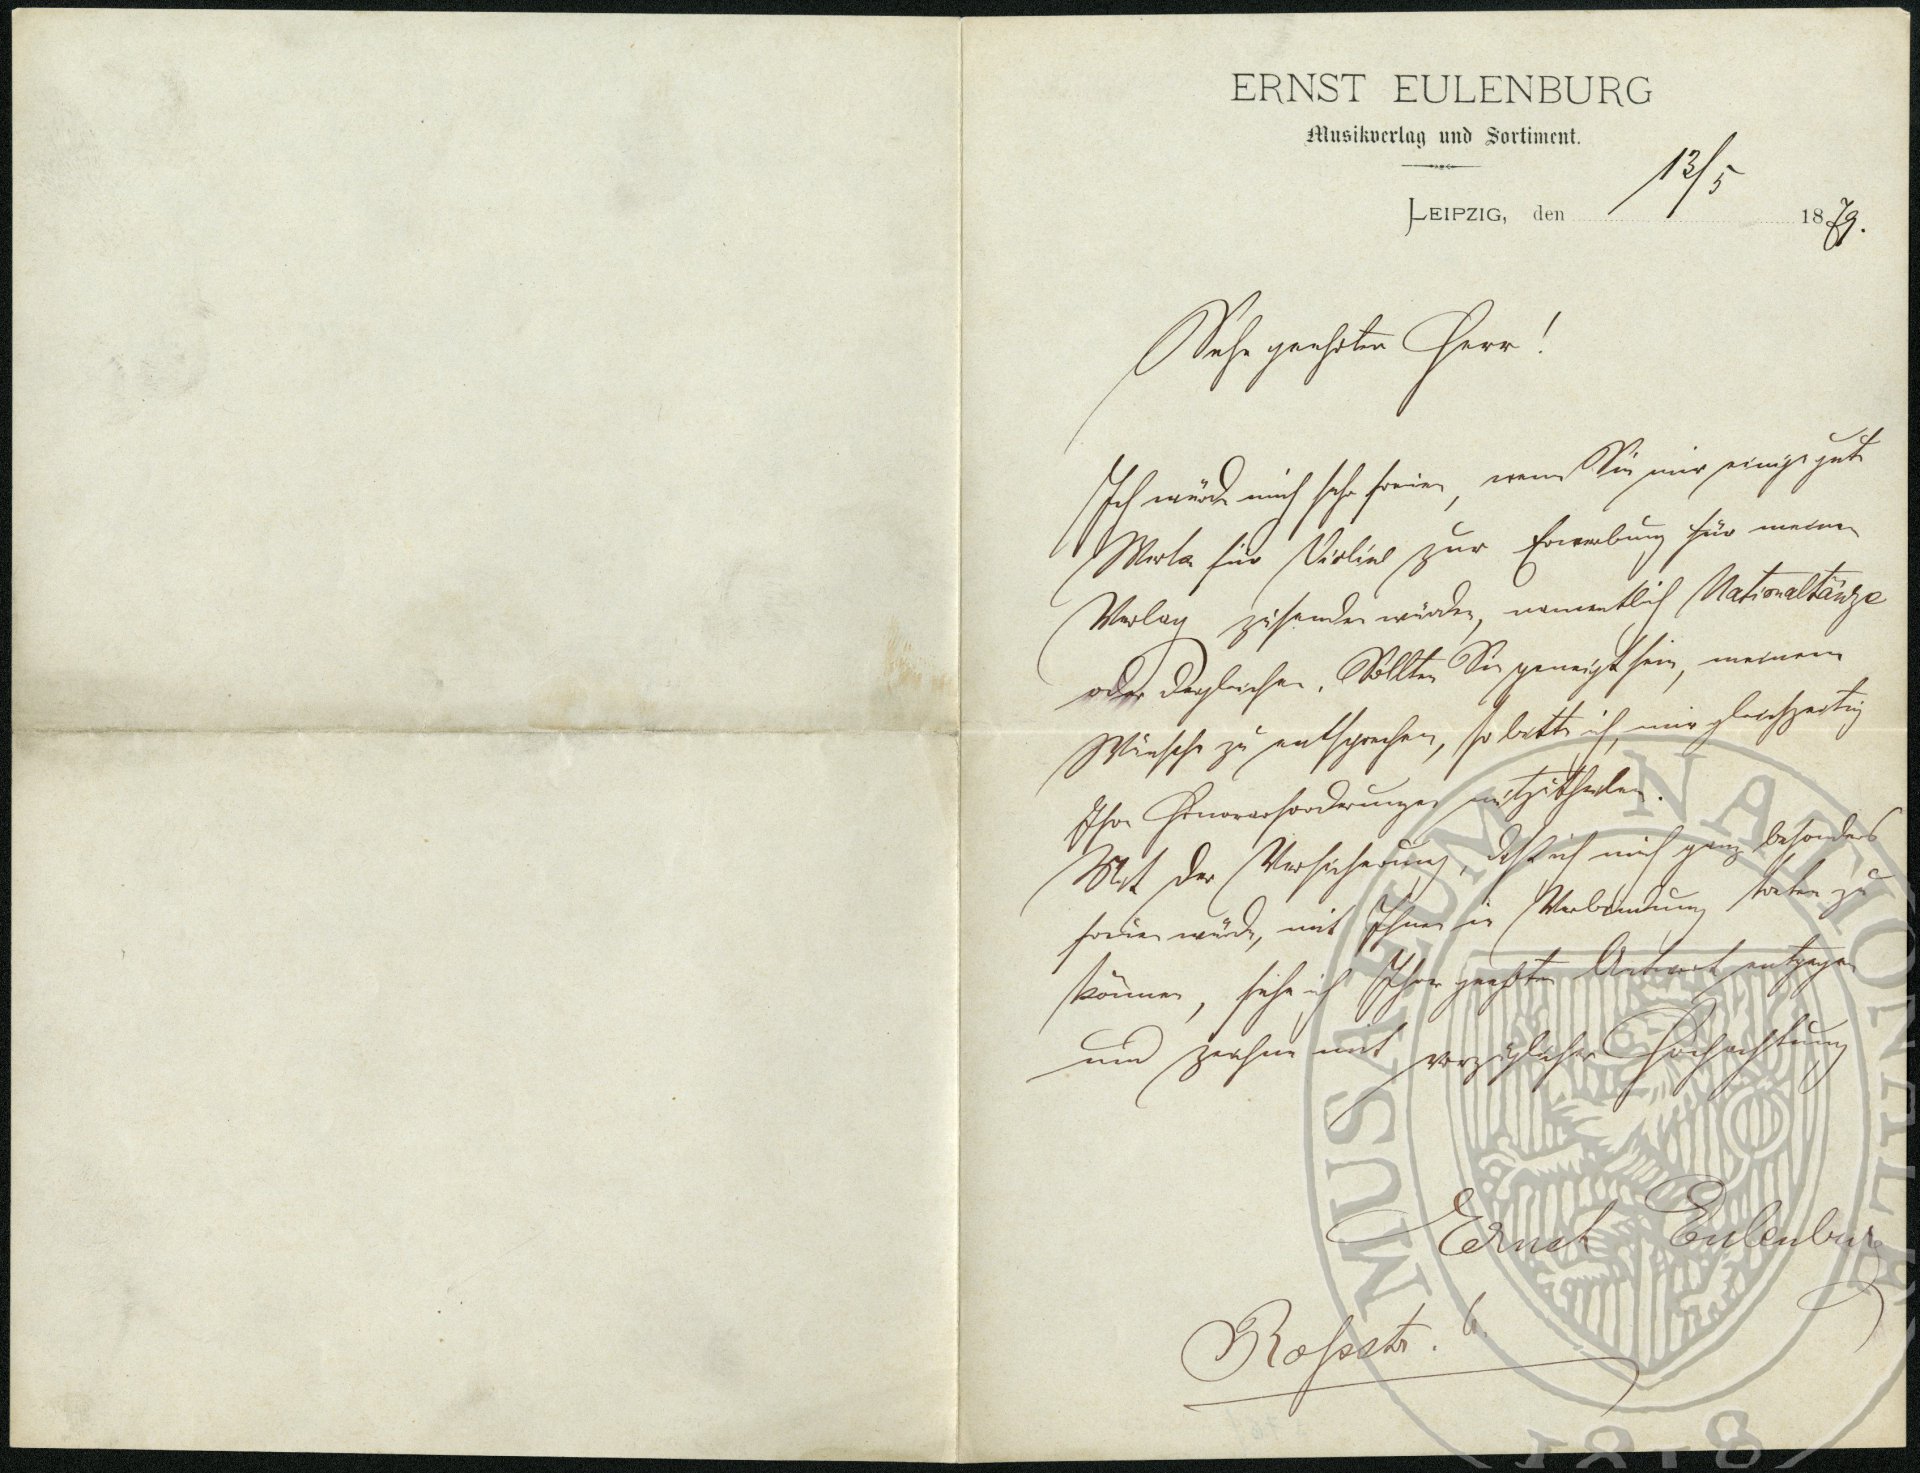 ERNST EULENBURG
Musikverlag und Sortiment.
LEIPZIG, den 13/5 1879.
Sehr geehrter Herr!
Ich würde mich sehr freuen, wenn Sie mir einige gute
Werke für Violine zur Erwerbung für meinen
Verlag zusenden würden, namentlich Nationaltänze
oder dergleichen. Sollten Sie geneigt sein, meinem
Wunsche zu entsprechen, so bitte ich, mir gleichzeitig
Ihre Honorarforderungen mitzutheilen.
Mit der Versicherung, daß ich mich ganz besonders
freuen würde, mit Ihnen in Verbindung treten zu
können, sehe ich Ihrer geehrten Antwort entgegen
und zeichne mit vorzüglicher Hochachtung
Ernst Eulenburg
Rossstr. 6.
MUSAEUM NATIONALE
1818